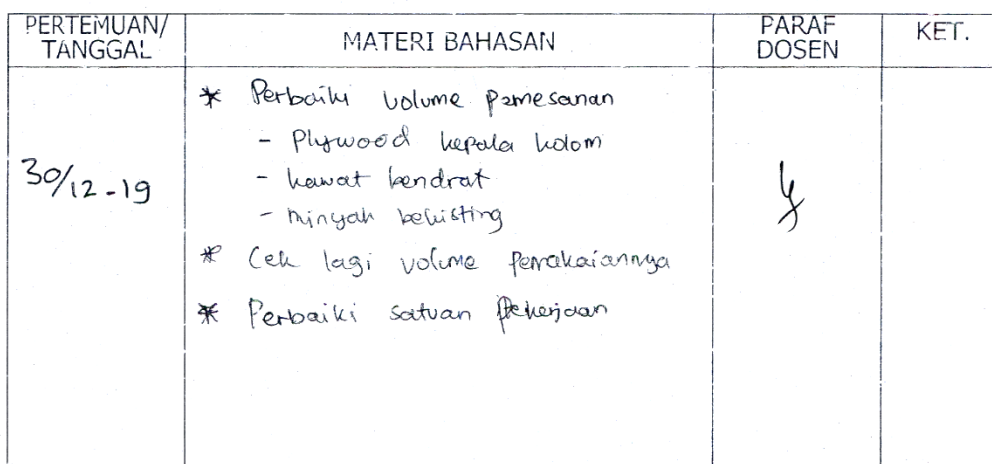 PERTEMUAN/ TANGGAL MATERI BAHASAN PARAF DOSEN KET.
30/12-19
* Perbaiki volume pemesanan
- Plywood kepala kolom
- kawat bendrat
- minyak bekisting
* Cek lagi volume pemakaiannya
* Perbaiki satuan Pekerjaan